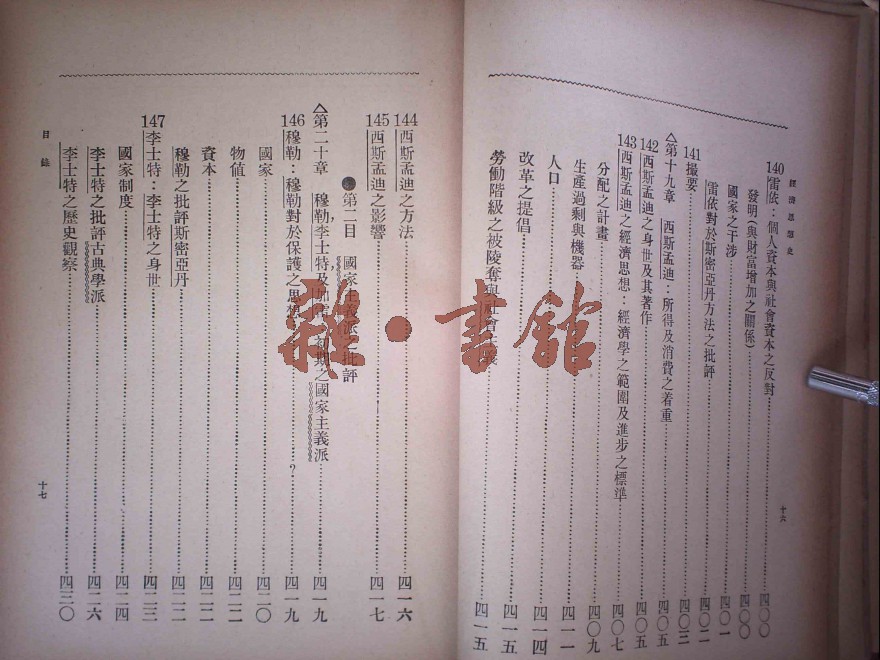 經濟思想史
140 雷依：個人資本與社會資本之反對………四〇〇
發明（與財富增加之關係）………四〇〇
國家之干涉………四〇一
雷依對於斯密亞丹方法之批評………四〇二
141 撮要………四〇三
△第十九章 西斯孟迪：所得及消費之着重………四〇五
142 西斯孟迪之身世及其著作………四〇五
143 西斯孟迪之經濟思想：經濟學之範圍及進步之標準………四〇七
分配之計畫………四〇九
生產過剩與機器………四一一
人口………四一四
改革之提倡………四一五
勞働階級之被陵奪與社會………四一五
十六
144 西斯孟迪之方法………四一六
145 西斯孟迪之影響………四一七
●第二目 國家主義派之批評
△第二十章 穆勒，李士特，及加雷：初期之國家主義派………四一九
146 穆勒：穆勒對於保護之思想………？………四一九
國家………四二〇
物值………四二二
資本………四二二
穆勒之批評斯密亞丹………四二二
147 李士特：李士特之身世………四二三
國家制度………四二四
李士特之批評古典學派………四二六
李士特之歷史觀察………四三〇
目錄
十七
雜·書館